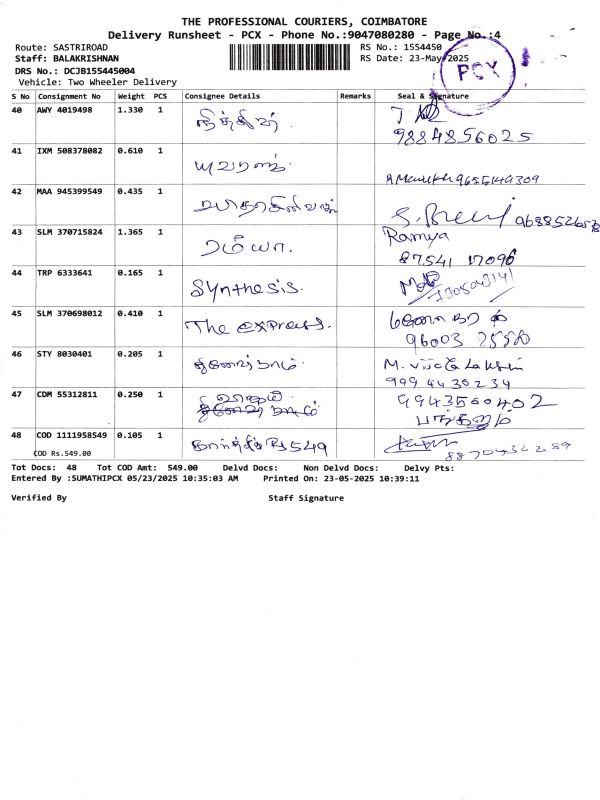 THE PROFESSIONAL COURIERS, COIMBATORE
Delivery Runsheet - PCX - Phone No.:9047080280 - Page No.:4
Route: SASTRIROAD RS No.: 1554450
Staff: BALAKRISHNAN RS Date: 23-May-2025
PCX
DRS No.: DCJB155445004
Vehicle: Two Wheeler Delivery
S No Consignment No Weight PCS Consignee Details Remarks Seal & Signature
40 AWY 4019498 1.330 1
9884856025
41 IXM 508378082 0.610 1 யுவராஜ் 9655149309
42 MAA 945399549 0.435 1
43 SLM 370715824 1.365 1 ரம்யா. Ramya
87541 17096
44 TRP 6333641 0.165 1 Synthesis.
45 SLM 370698012 0.410 1 The express.
96003
46 STY 8030401 0.205 1 M. Vijaya Lakshmi
999 44 30234
47 CDM 55312811 0.250 1 9943560402
48 COD 1111958549 0.105 1 கார்த்திக் Rs 549
COD Rs.549.00
Tot Docs: 48 Tot COD Amt: 549.00 Delvd Docs: Non Delvd Docs: Delvy Pts:
Entered By :SUMATHIPCX 05/23/2025 10:35:03 AM Printed On: 23-05-2025 10:39:11
Verified By Staff Signature